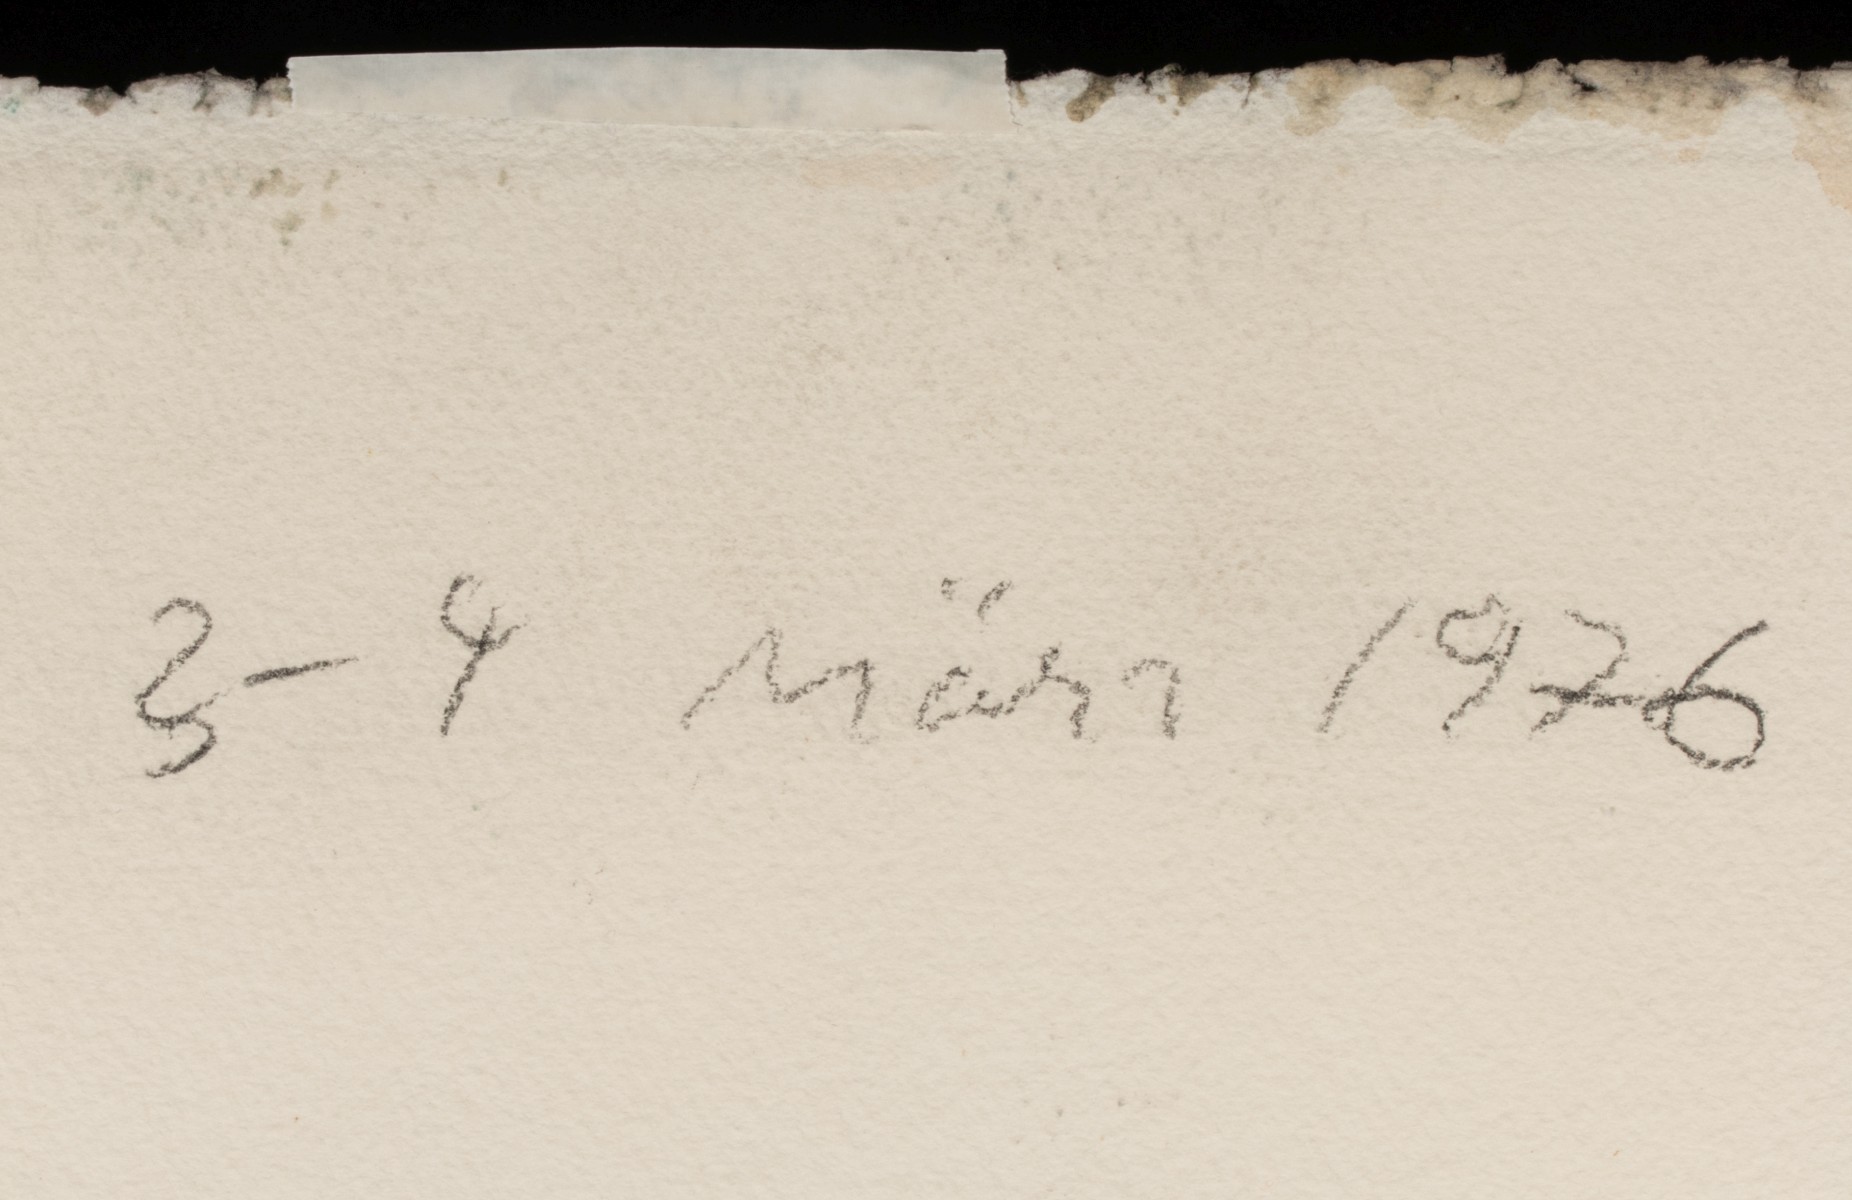 3-4 März 1976